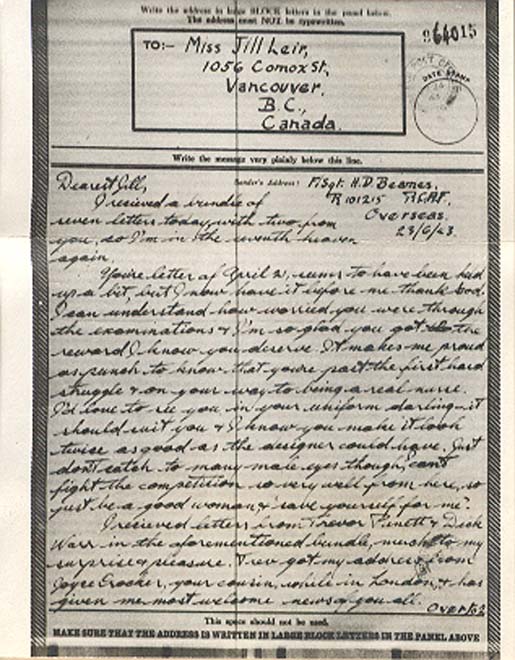 Write the address in large BLOCK letters in the panel below.
The address must NOT be typewritten.
TO:- Miss Jill Leir,
1056 Comox St,
Vancouver.
B.C.,
Canada.
DATE STAMP
Write the message very plainly below this line.
Sender's Address: F/Sgt. H.D. Beames,
R101215 R.C.A.F.
Overseas.
23/6/43.
Dearest Jill,
I recieved a bundle of
seven letters today, with two from
you, so I'm in the seventh heaven
again.
You're letter of April 2, seems to have been held
up a bit, but I now have it before me thank God.
I can understand how worried you were through
the examinations & I'm so glad you got the
reward I know you deserve. It makes me proud
as punch to know that you're past the first hard
struggle & on your way to being a real nurse.
I'd love to see you in your uniform darling - it
should suit you & I know you make it look
twice as good as the designer could have. Just
don't catch to many male eyes though, can't
fight the competition so very well from here, so
just be a good woman & "save yourself for me".
I recieved letters from Trevor & Dick
Warr in the aforementioned bundle, much to my
surprise & pleasure. Trev got my address from
Joyce Crocker, your cousin, while in London, & has
given me most welcome news of you all.
Over/s2
This space should not be used.
MAKE SURE THAT THE ADDRESS IS WRITTEN IN LARGE BLOCK LETTERS IN THE PANEL ABOVE